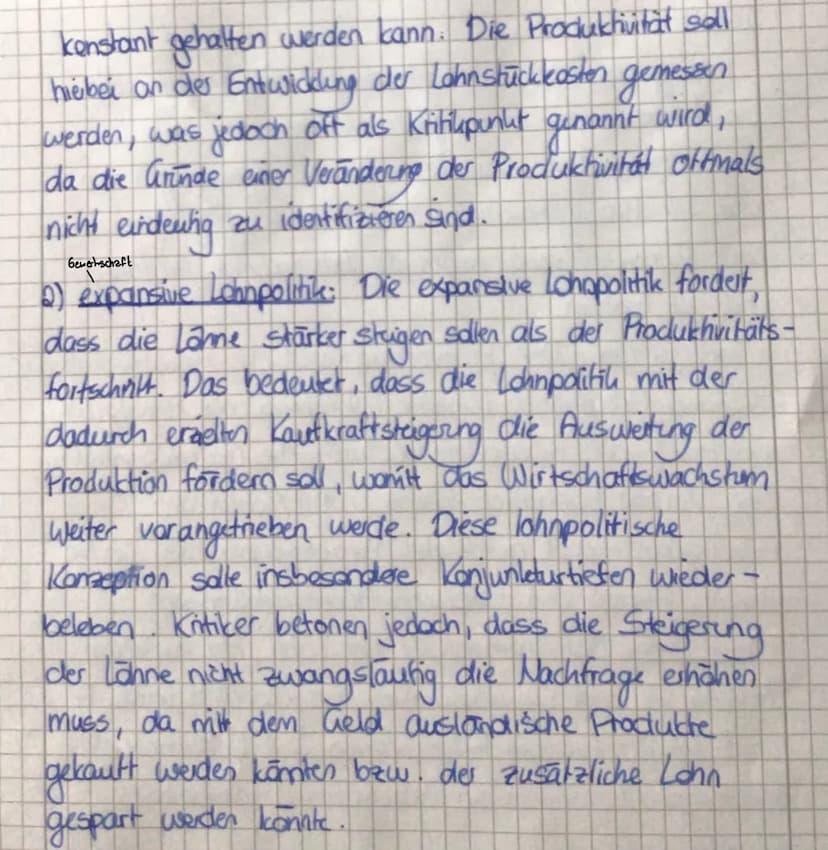 konstant gehalten werden kann. Die Produktivität soll
hiebei an der Entwicklung der Lohnstückkosten gemessen
werden, was jedoch oft als Kritikpunkt genannt wird,
da die Gründe einer Veränderung der Produktivität oftmals
nicht eindeutig zu identifizieren sind.
Gewerkschaft
2) expansive Lohnpolitik: Die expansive Lohnpolitik fordert,
dass die Löhne stärker steigen sollen als der Produktivitäts-
fortschritt. Das bedeutet, dass die Lohnpolitik mit der
dadurch erzielten Kaufkraftsteigerung die Ausweitung der
Produktion fördern soll, womit das Wirtschaftswachstum
weiter vorangetrieben werde. Diese lohnpolitische
Konzeption solle insbesondere Konjunkturtiefen wieder-
beleben. Kritiker betonen jedoch, dass die Steigerung
der Löhne nicht zwangsläufig die Nachfrage erhöhen
muss, da mit dem Geld ausländische Produkte
gekauft werden könnten bzw. der zusätzliche Lohn
gespart werden könnte.